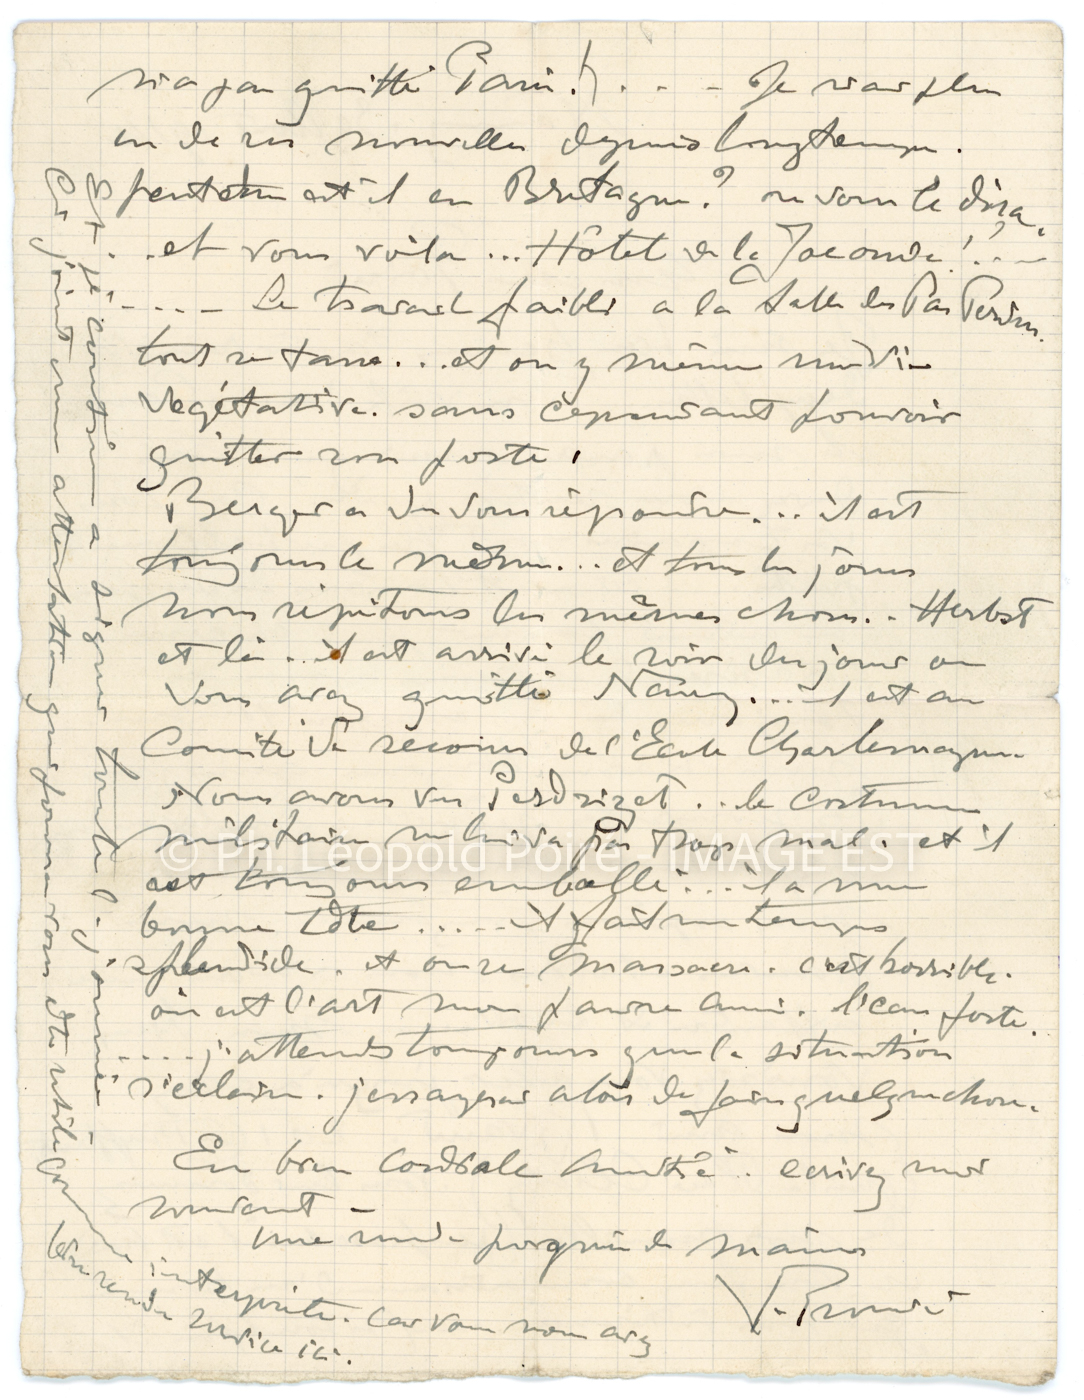 n'a pas quitté Paris!) . . . Je n'ai plus
eu de ses nouvelles depuis longtemps.
peut-être est il en Bretagne? on vous le dira.
..et vous voila ... Hôtel de la Joconde!....
.... Le travail faibli a la Salle des Pas Perdus.
tout se tasse...et on y mène une vie
végétative. sans cependant pouvoir
quitter son poste.
Berger a du vous répondre... il est
toujours le même... et tous les jours
nous répétons les mêmes choses.. Herbst
est là.. il est arrivé le soir du jour ou
vous avez quitté Nancy... il est au
Comité de secours de l'Ecole Charlemagne.
Nous avons vu Perdrizet .. le costume
militaire ne lui va pas trop mal. et il
est toujours emballé... il a une
bonne tête ..... il fait un temps
splendide. et on se massacre. c'est horrible.
où est l'art mon pauvre ami.
.... j'attends toujours que la situation
s'éclaire. j'essayerai alors de faire quelque chose.
En bien cordiale amitié. ecrivez moi
souvent –
une rude poignée de mains
V. Prouvé
et je continue a signer toute la journée
Ci joint une attestation qui pourra vous être utile comme
interprète. car vous nous avez
bien rendu service ici.
© Ph Léopold Poiré / IMAGE'EST